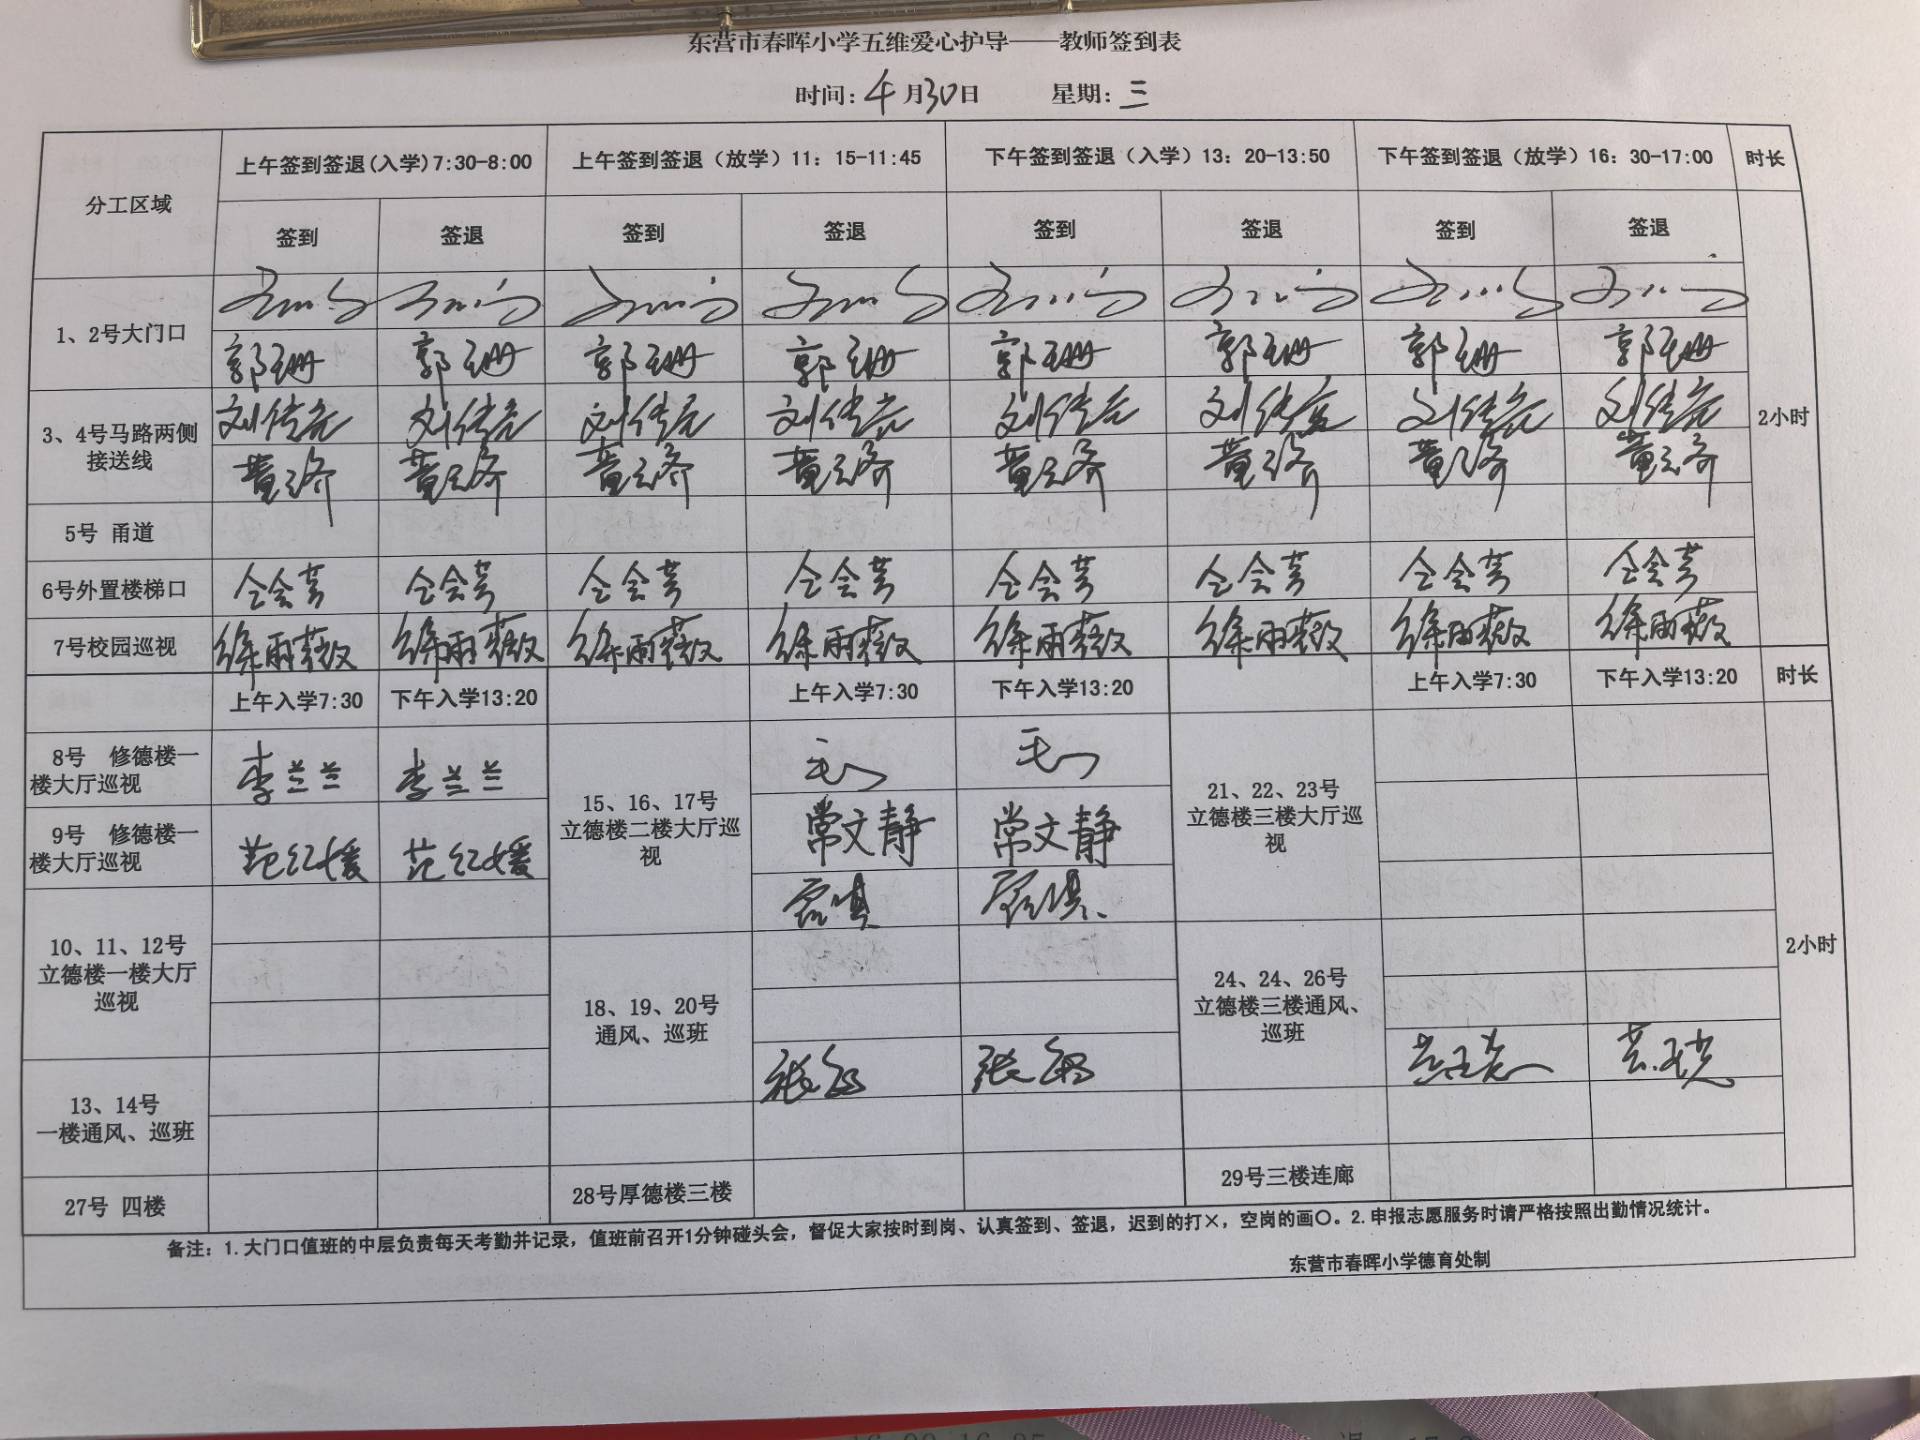 东营市春晖小学五维爱心护导——教师签到表
时间：4月30日 星期：三
分工区域 上午签到签退(入学)7:30-8:00 上午签到签退（放学）11：15-11:45 下午签到签退（入学）13：20-13:50 下午签到签退（放学）16：30-17:00 时长
签到 签退 签到 签退 签到 签退 签到 签退
1、2号大门口
郭珊 郭珊 郭珊 郭珊 郭珊 郭珊 郭珊 郭珊
3、4号马路两侧
接送线
刘传亮 刘传亮 刘传亮 刘传亮 刘传亮 刘传亮 刘传亮 刘传亮
2小时
5号 甬道
6号外置楼梯口 仝会芳 仝会芳 仝会芳 仝会芳 仝会芳 仝会芳 仝会芳 仝会芳
7号校园巡视 徐雨薇 徐雨薇 徐雨薇 徐雨薇 徐雨薇 徐雨薇 徐雨薇 徐雨薇
上午入学7:30 下午入学13:20 上午入学7:30 下午入学13:20 上午入学7:30 下午入学13:20 时长
8号 修德楼一
楼大厅巡视
李兰兰 李兰兰
9号 修德楼一
楼大厅巡视
范红媛 范红媛
15、16、17号
立德楼二楼大厅巡
视
常文静 常文静
21、22、23号
立德楼三楼大厅巡
视
10、11、12号
立德楼一楼大厅
巡视
18、19、20号
通风、巡班
24、24、26号
立德楼三楼通风、
巡班
2小时
13、14号
一楼通风、巡班
27号 四楼 28号厚德楼三楼 29号三楼连廊
备注：1.大门口值班的中层负责每天考勤并记录，值班前召开1分钟碰头会，督促大家按时到岗、认真签到、签退，迟到的打×，空岗的画〇。2.申报志愿服务时请严格按照出勤情况统计。
东营市春晖小学德育处制